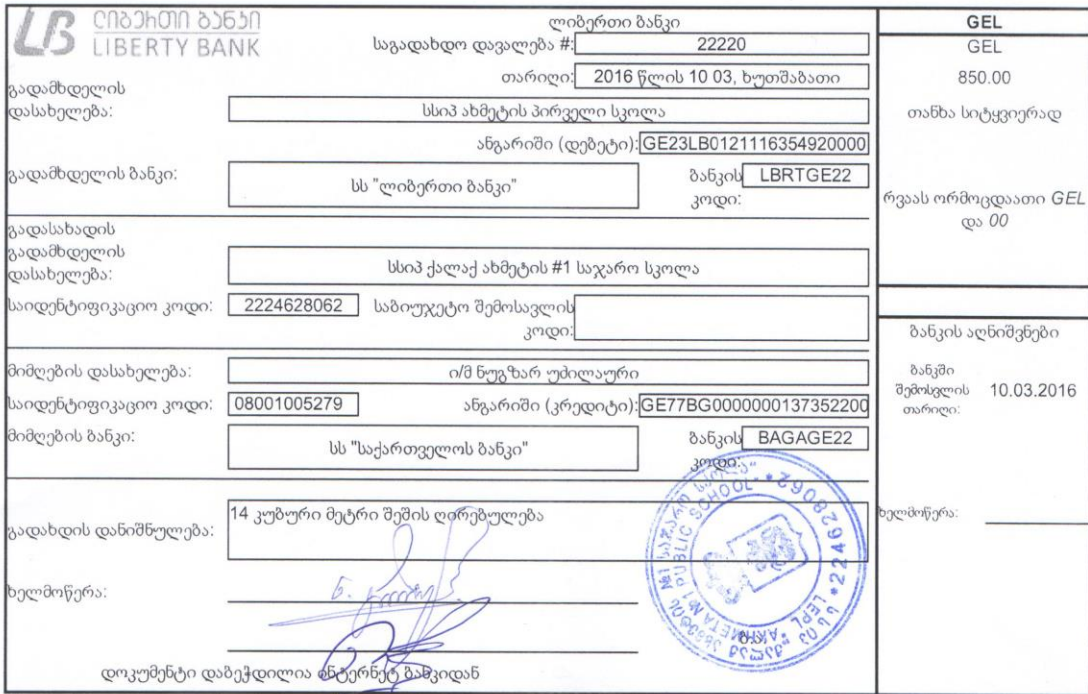 ლიბერთი ბანკი
LIBERTY BANK
ლიბერთი ბანკი
საგადახდო დავალება #: 22220
თარიღი: 2016 წლის 10 03, ხუთშაბათი
გადამხდელის
დასახელება: სსიპ ახმეტის პირველი სკოლა
ანგარიში (დებეტი): GE23LB0121116354920000
გადამხდელის ბანკი: სს "ლიბერთი ბანკი" ბანკის კოდი: LBRTGE22
გადასახადის
გადამხდელის
დასახელება: სსიპ ქალაქ ახმეტის #1 საჯარო სკოლა
საიდენტიფიკაციო კოდი: 2224628062 საბიუჯეტო შემოსავლის
კოდი:
მიმღების დასახელება: ი/მ ნუგზარ უძილაური
საიდენტიფიკაციო კოდი: 08001005279 ანგარიში (კრედიტი): GE77BG0000000137352200
მიმღების ბანკი: სს "საქართველოს ბანკი" ბანკის კოდი: BAGAGE22
გადახდის დანიშნულება: 14 კუბური მეტრი შეშის ღირებულება
ხელმოწერა:
დოკუმენტი დაბეჭდილია ინტერნეტ ბანკიდან
GEL
GEL
850.00
თანხა სიტყვიერად
რვაას ორმოცდაათი GEL
და 00
ბანკის აღნიშვნები
ბანკში
შემოსვლის 10.03.2016
თარიღი:
ხელმოწერა:
LEPL "AKHMETA №1 PUBLIC SCHOOL" * 224628062 *